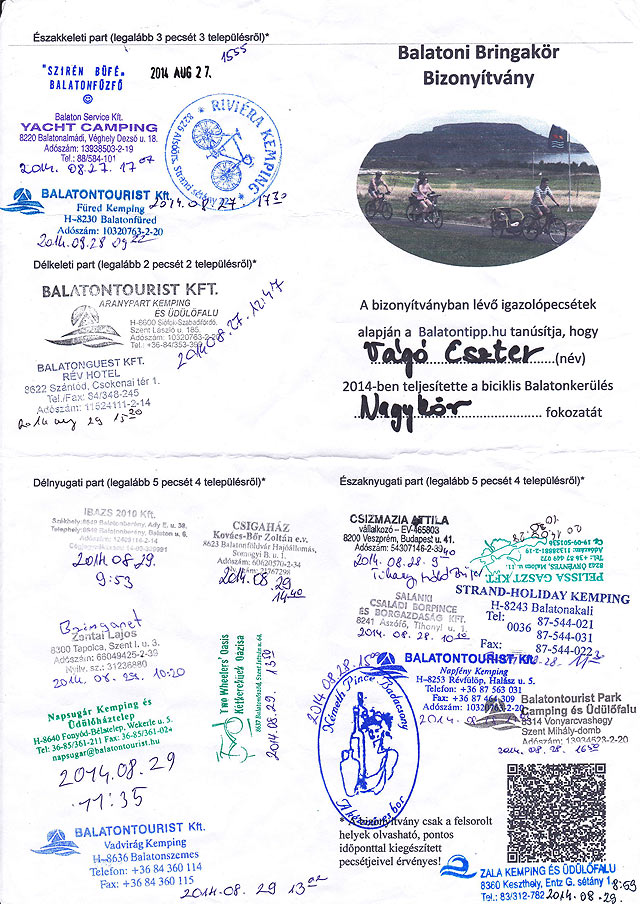 Északkeleti part (legalább 3 pecsét 3 településről)*
1555
"SZIRÉN BÜFÉ"
BALATONFŰZFŐ
2014 AUG 27.
Balaton Service Kft.
YACHT CAMPING
8220 Balatonalmádi, Véghely Dezső u. 18.
Adószám: 13938503-2-19
Tel.: 88/584-101
2014. 08.27. 17 07
RIVIÉRA KEMPING
2014.08.27 17 30
BALATONTOURIST Kft.
Füred Kemping
H-8230 Balatonfüred
Adószám: 10320763-2-20
2014.08.28 09 22
Délkeleti part (legalább 2 pecsét 2 településről)*
BALATONTOURIST KFT.
ARANYPART KEMPING
ÉS ÜDÜLŐFALU
H-8600 Siófok-Szabadifürdő,
Szent László u. 185.
Adószám: 10320763-2-20
Tel.: +36-84/353-
2014.08.27. 12:47
BALATONGUEST KFT.
RÉV HOTEL
8622 Szántód, Csokonai tér 1.
Tel./Fax: 84/348-245
Adószám: 11524111-2-14
2014 aug 29 15 20
Balatoni Bringakör
Bizonyítvány
A bizonyítványban lévő igazolópecsétek
alapján a Balatontipp.hu tanúsítja, hogy
Vágó Eszter (név)
2014-ben teljesítette a biciklis Balatonkerülés
Nagykör fokozatát
Délnyugati part (legalább 5 pecsét 4 településről)*
IBAZS 2010 Kft.
2014.08.29.
9:53
CSIGAHÁZ
Kovács-Bőr Zoltán e.v.
8623 Balatonföldvár Hajóállomás,
Somogyi B. u. 1.
Adószám: 60620570-2-34
2014.08.29
14 40
Bringanet
Zantai Lajos
8300 Tapolca, Szent I. u. 3.
Adószám: 66049425-2-39
Nyilv. sz.: 31236880
10:20
Two Wheelers' Oasis
Kétkerekűek Oázisa
8637 Balatonszárszó, Szent István u. 64.
2014.08.29. 13 50
Napsugár Kemping és
Üdülőháztelep
H-8640 Fonyód-Bélatelep, Wekerle u. 5.
Tel: 36-85/361-211 Fax: 36-85/361-024
napsugar@balatontourist.hu
2014.08.29
11:35
BALATONTOURIST Kft.
Vadvirág Kemping
H-8636 Balatonszemes
Telefon: +36 84 360 114
Fax: +36 84 360 115
2014.08.29 13 02
Északnyugati part (legalább 5 pecsét 4 településről)*
CSIZMAZIA ATTILA
vállalkozó – EV-465803
8200 Veszprém, Budapest u. 41.
Adószám: 54307146-2-39
2014.08.28.
PELISSA GASZT KFT.
SALÁNKI
CSALÁDI BORPINCE
ÉS BORGAZDASÁG KFT.
8241 Aszófő, Tihanyi u. 1.
2014.08.28.
STRAND-HOLIDAY KEMPING
H-8243 Balatonakali
Tel: 87-544-021
0036 87-544-031
Fax: 87-544-0223
BALATONTOURIST Kft.
Napfény Kemping
H-8253 Révfülöp, Halász u. 5.
Telefon: +36 87 563 031
Fax: +36 87 464 309
Adószám: 10320763-2-20
2014.08.28. 15 00
Németh Pince Badacsony
Balatontourist Park
Camping és Üdülőfalu
8314 Vonyarcvashegy
Szent Mihály-domb
Adószám: 13934523-2-20
2014.08.28. 16 50
* A bizonyítvány csak a felsorolt
helyek olvasható, pontos
időponttal kiegészített
pecsétjeivel érvényes!
ZALA KEMPING ÉS ÜDÜLŐFALU
8360 Keszthely, Entz G. sétány 1.
Tel.: 83/312-782
8:59
2014.08.29.